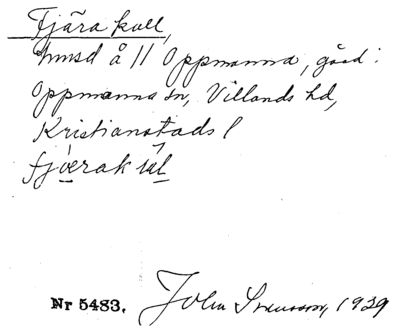 Fjära kull,
hmsd å 11 Oppmanna, gård:
Oppmanna sn, Villands hd,
Kristianstads l
Nr 5483. John Svensson, 1929